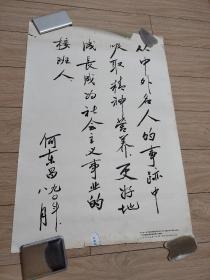 从中外名人的事迹中
吸取精神营养更好地
成长成为社会主义事业的
接班人
何东昌九〇年
八月